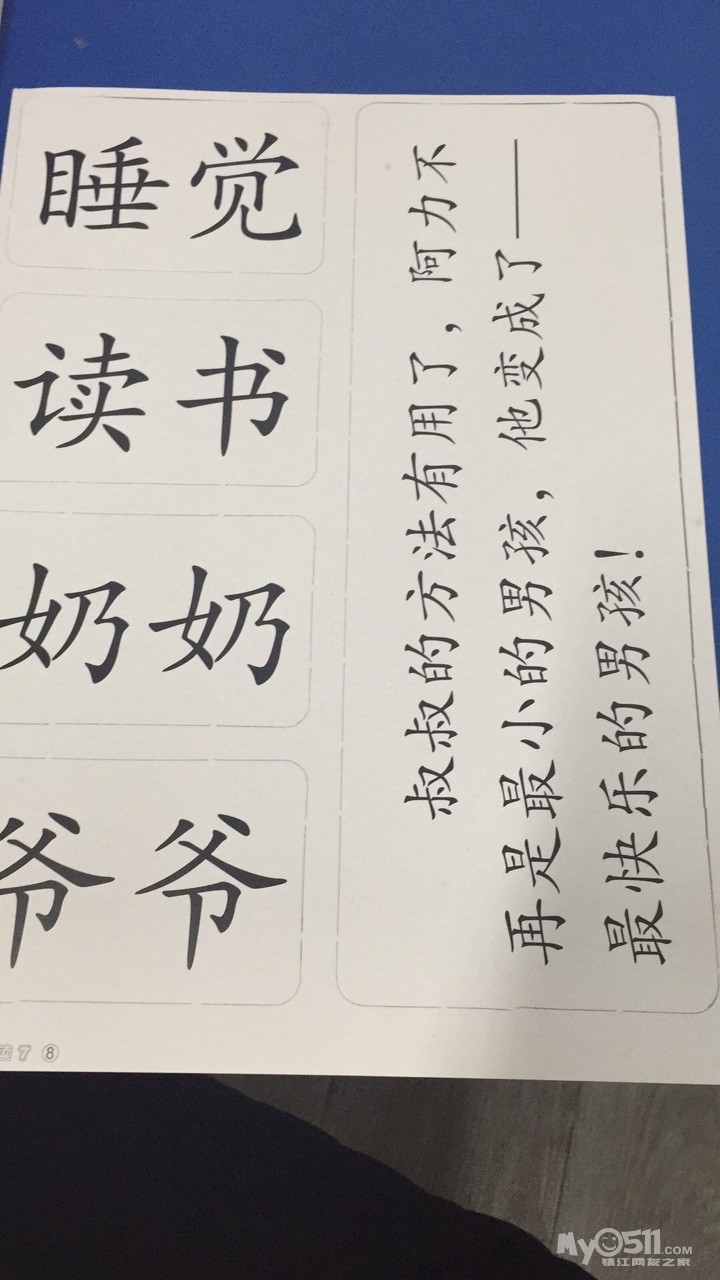 睡觉
读书
奶奶
爷爷
叔叔的方法有用了，阿力不
再是最小的男孩，他变成了——
最快乐的男孩！
7 ⑧
My0511.COM
镇江网友之家